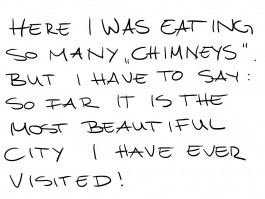 HERE I WAS EATING
SO MANY „CHIMNEYS".
BUT I HAVE TO SAY:
SO FAR IT IS THE
MOST BEAUTIFUL
CITY I HAVE EVER
VISITED!